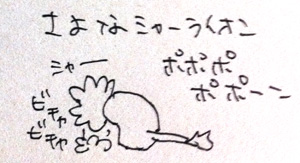 さよなミャーライオン
ミャー
ポポポ
ポポーン
ビチャ
ビチャ